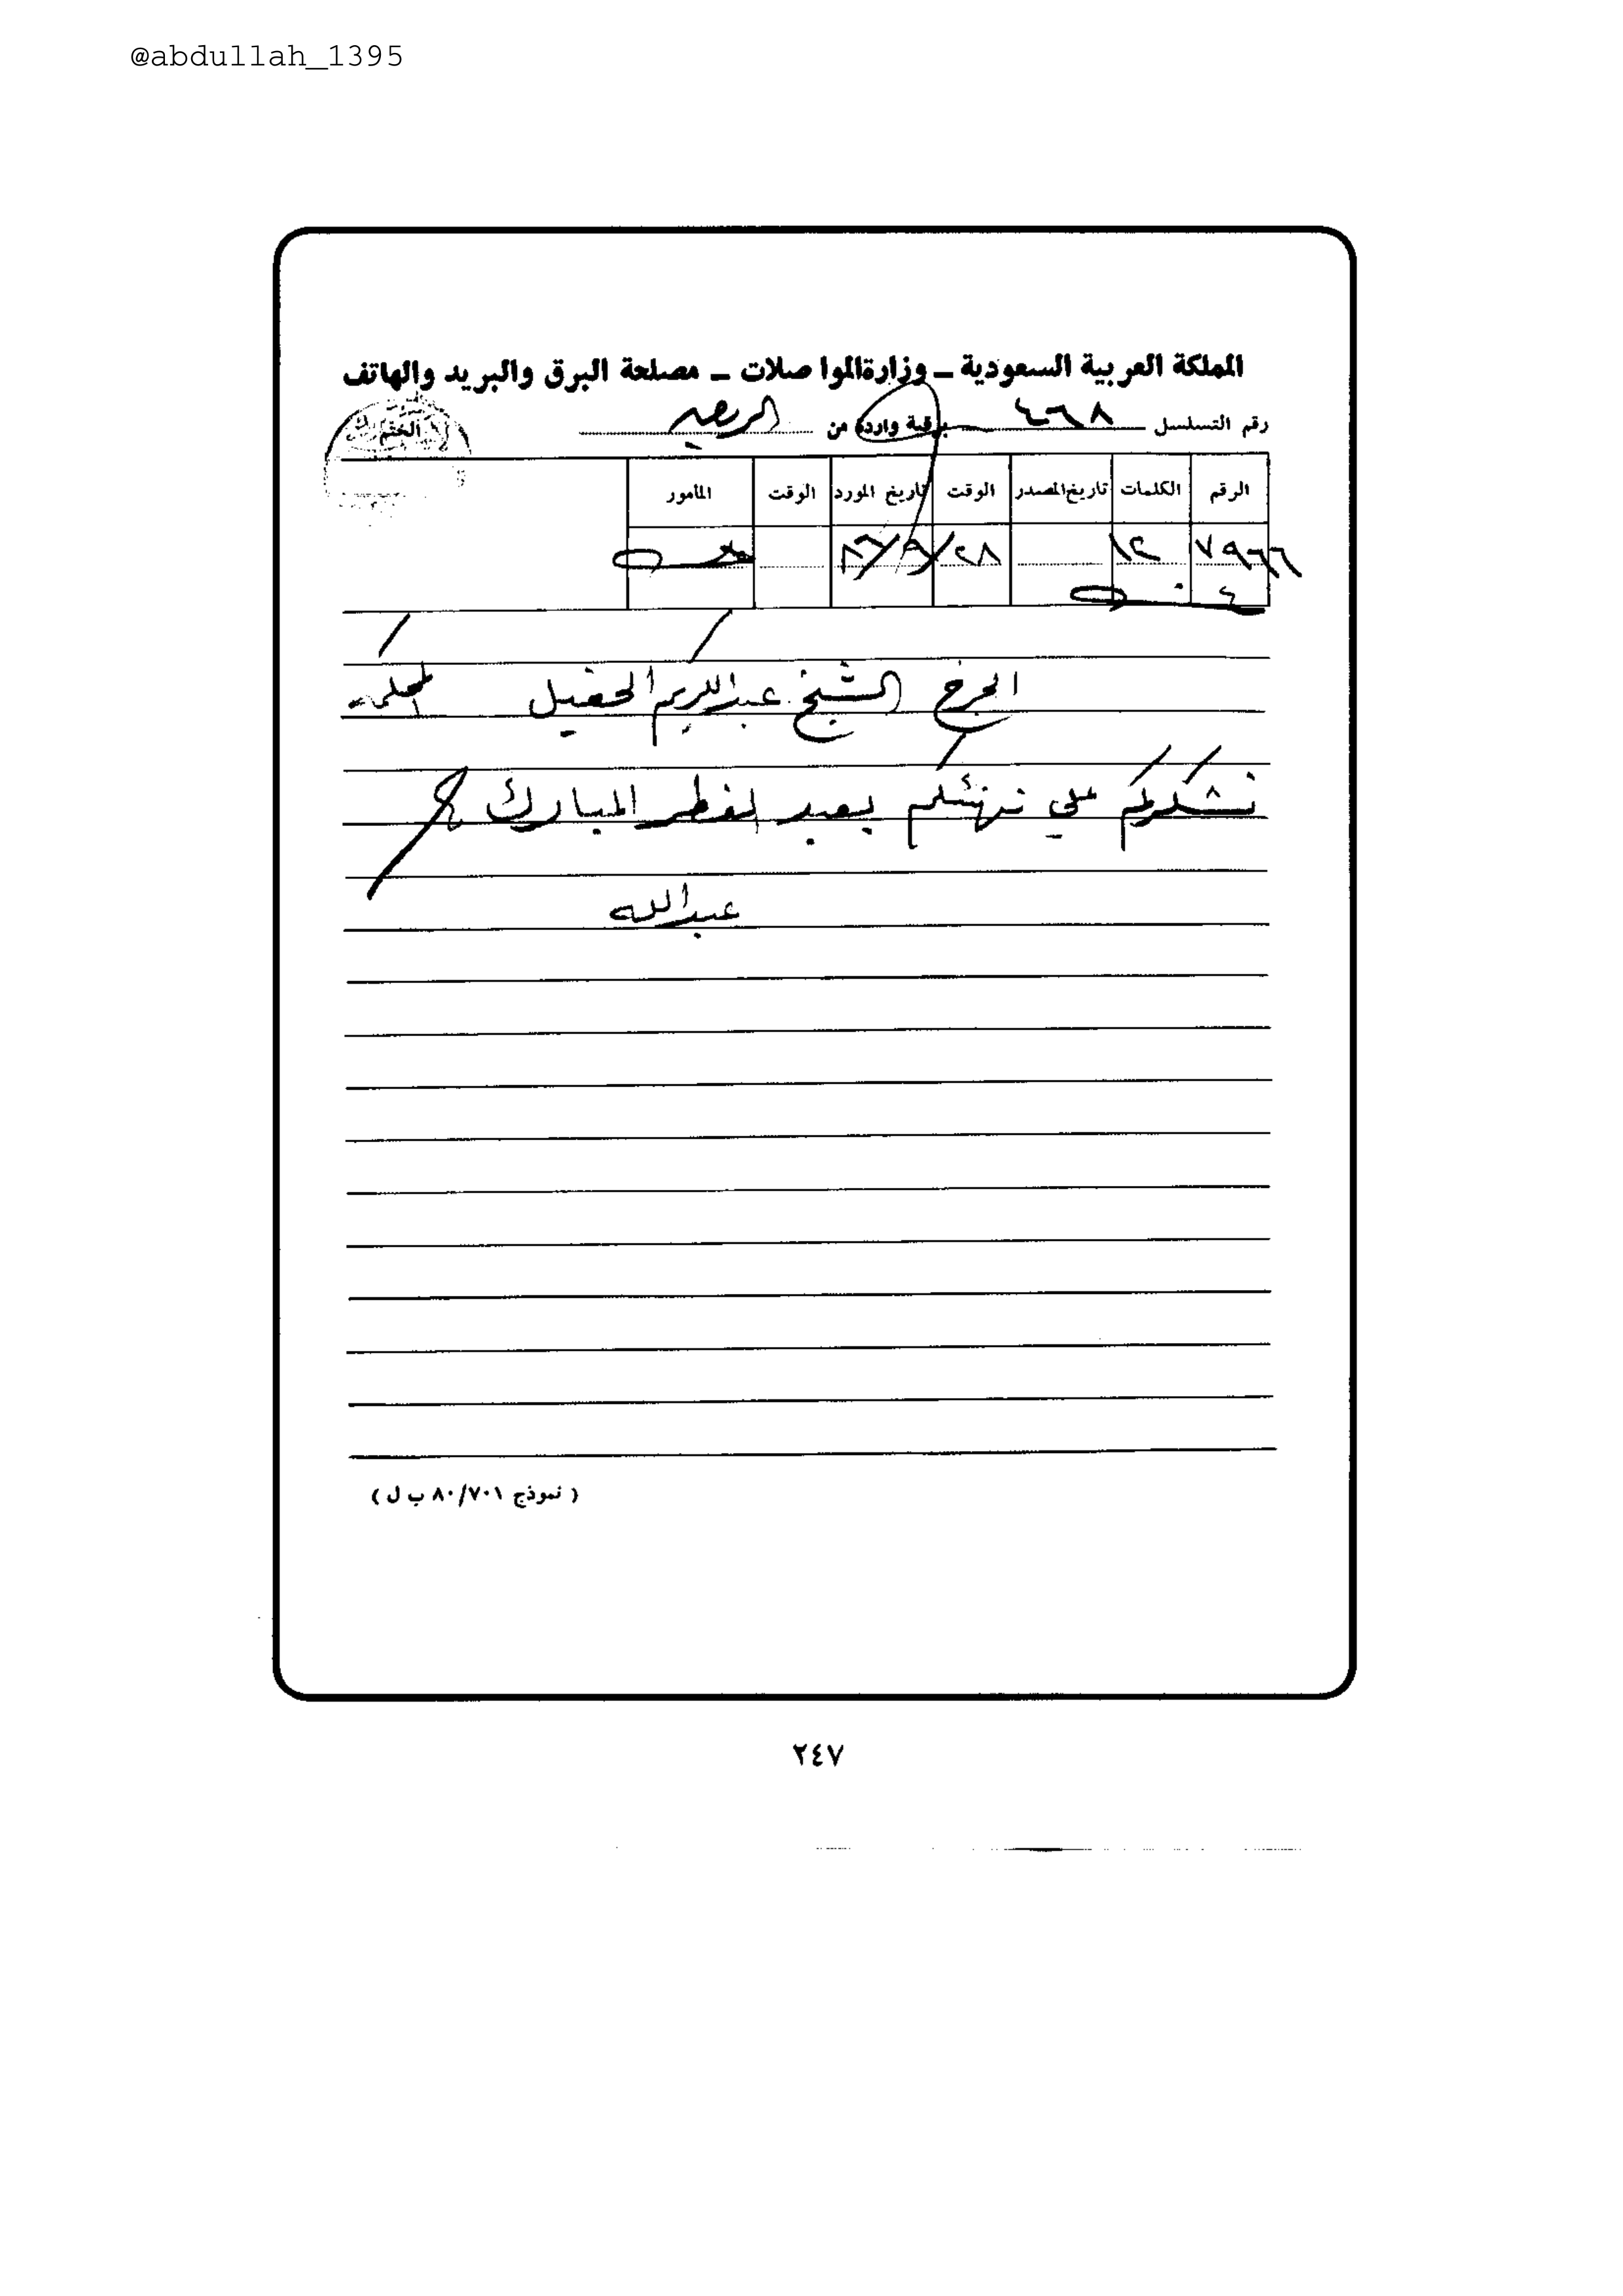 @abdullah_1395
المملكة العربية السعودية ــ وزارة المواصلات ــ مصلحة البرق والبريد والهاتف
رقم التسلسل ٤٦٨ برقية واردة من
الختم
الرقم الكلمات تاريخ المصدر الوقت تاريخ المورد الوقت المأمور
٧٩٦٦ ١٢ ٢٨/٩/٨٦
٤
الخرج الشيخ عبدالكريم الحقيل
نشكركم على تهنئتكم بعيد الفطر المبارك
عبدالله
( نموذج ٨٠/٧٠١ ب ل )
٢٤٧